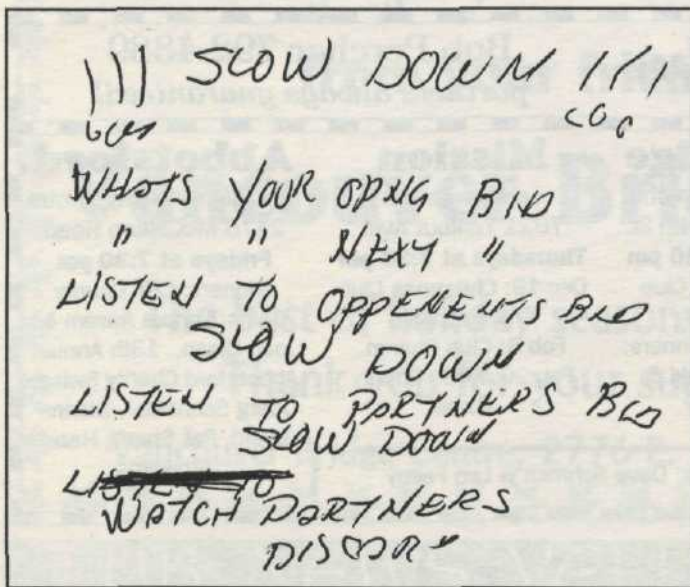 !!! SLOW DOWN !!!
WHATS YOUR OPNG BID
" " NEXT "
LISTEN TO OPPENENTS BID
SLOW DOWN
LISTEN TO PARTNERS BID
SLOW DOWN
LISTEN TO
WATCH PARTNERS
DISCARD